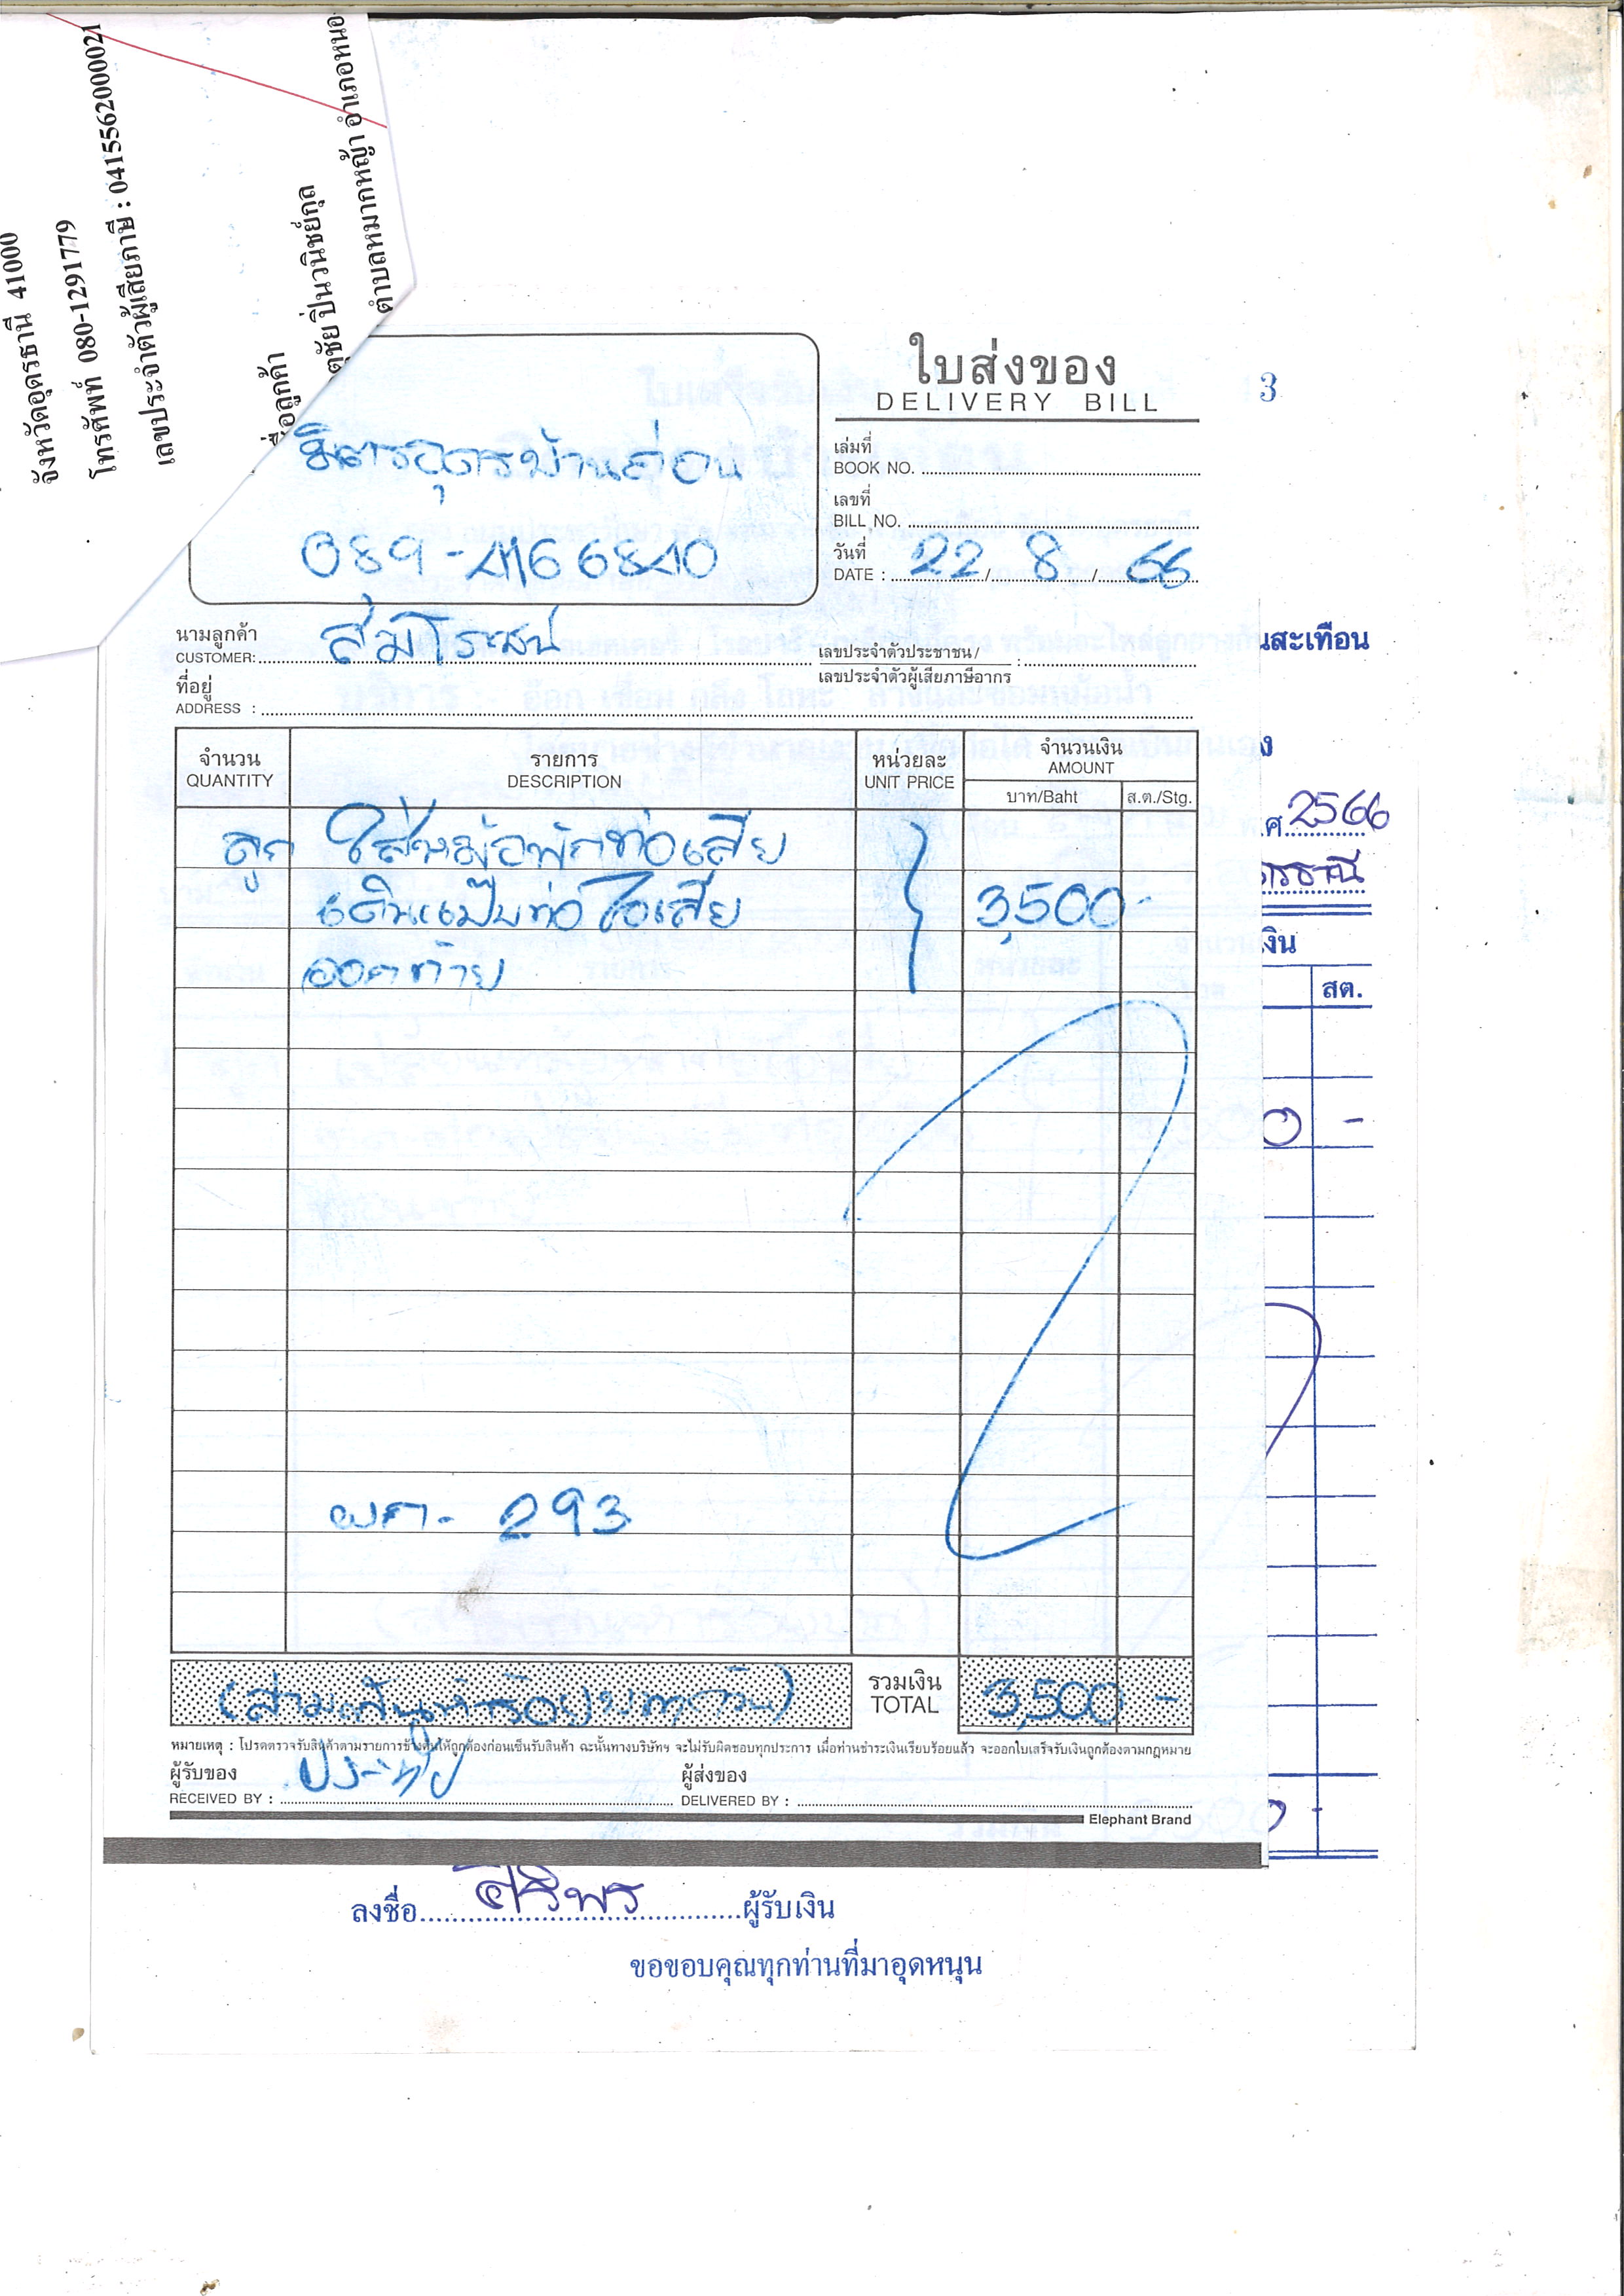 จังหวัดอุดรธานี 41000
โทรศัพท์ 080-1291779
เลขประจำตัวผู้เสียภาษี : 0415562000021
ชื่อลูกค้า
ปิ่นวนิชย์กุล
ตำบลหมากหญ้า อำเภอหนอ
ใบส่งของ
DELIVERY BILL
3
มิตรอุดรบ้านถ่อน
089-4166840
เล่มที่
BOOK NO.
เลขที่
BILL NO.
วันที่
DATE : 22 / 8 / 66
นามลูกค้า
CUSTOMER:
เลขประจำตัวประชาชน/
เลขประจำตัวผู้เสียภาษีอากร :
ที่อยู่
ADDRESS :
นสะเทือน
ง
จำนวน รายการ หน่วยละ จำนวนเงิน
QUANTITY DESCRIPTION UNIT PRICE AMOUNT
บาท/Baht ส.ต./Stg.
ศ. 2566
ลูก ใส่หม้อพักท่อเสีย
เดินแป๊บท่อไอเสีย 3,500 -
ออกท้าย
ดรธานี
งิน
สต.
0 -
ผก - 293
(สามพันห้าร้อยบาทถ้วน) รวมเงิน 3,500 -
TOTAL
หมายเหตุ : โปรดตรวจรับสินค้าตามรายการข้างต้นให้ถูกต้องก่อนเซ็นรับสินค้า ฉะนั้นทางบริษัทฯ จะไม่รับผิดชอบทุกประการ เมื่อท่านชำระเงินเรียบร้อยแล้ว จะออกใบเสร็จรับเงินถูกต้องตามกฎหมาย
ผู้รับของ ประทีป ผู้ส่งของ
RECEIVED BY : DELIVERED BY :
Elephant Brand
0 -
ลงชื่อ ศิริพร ผู้รับเงิน
ขอขอบคุณทุกท่านที่มาอุดหนุน